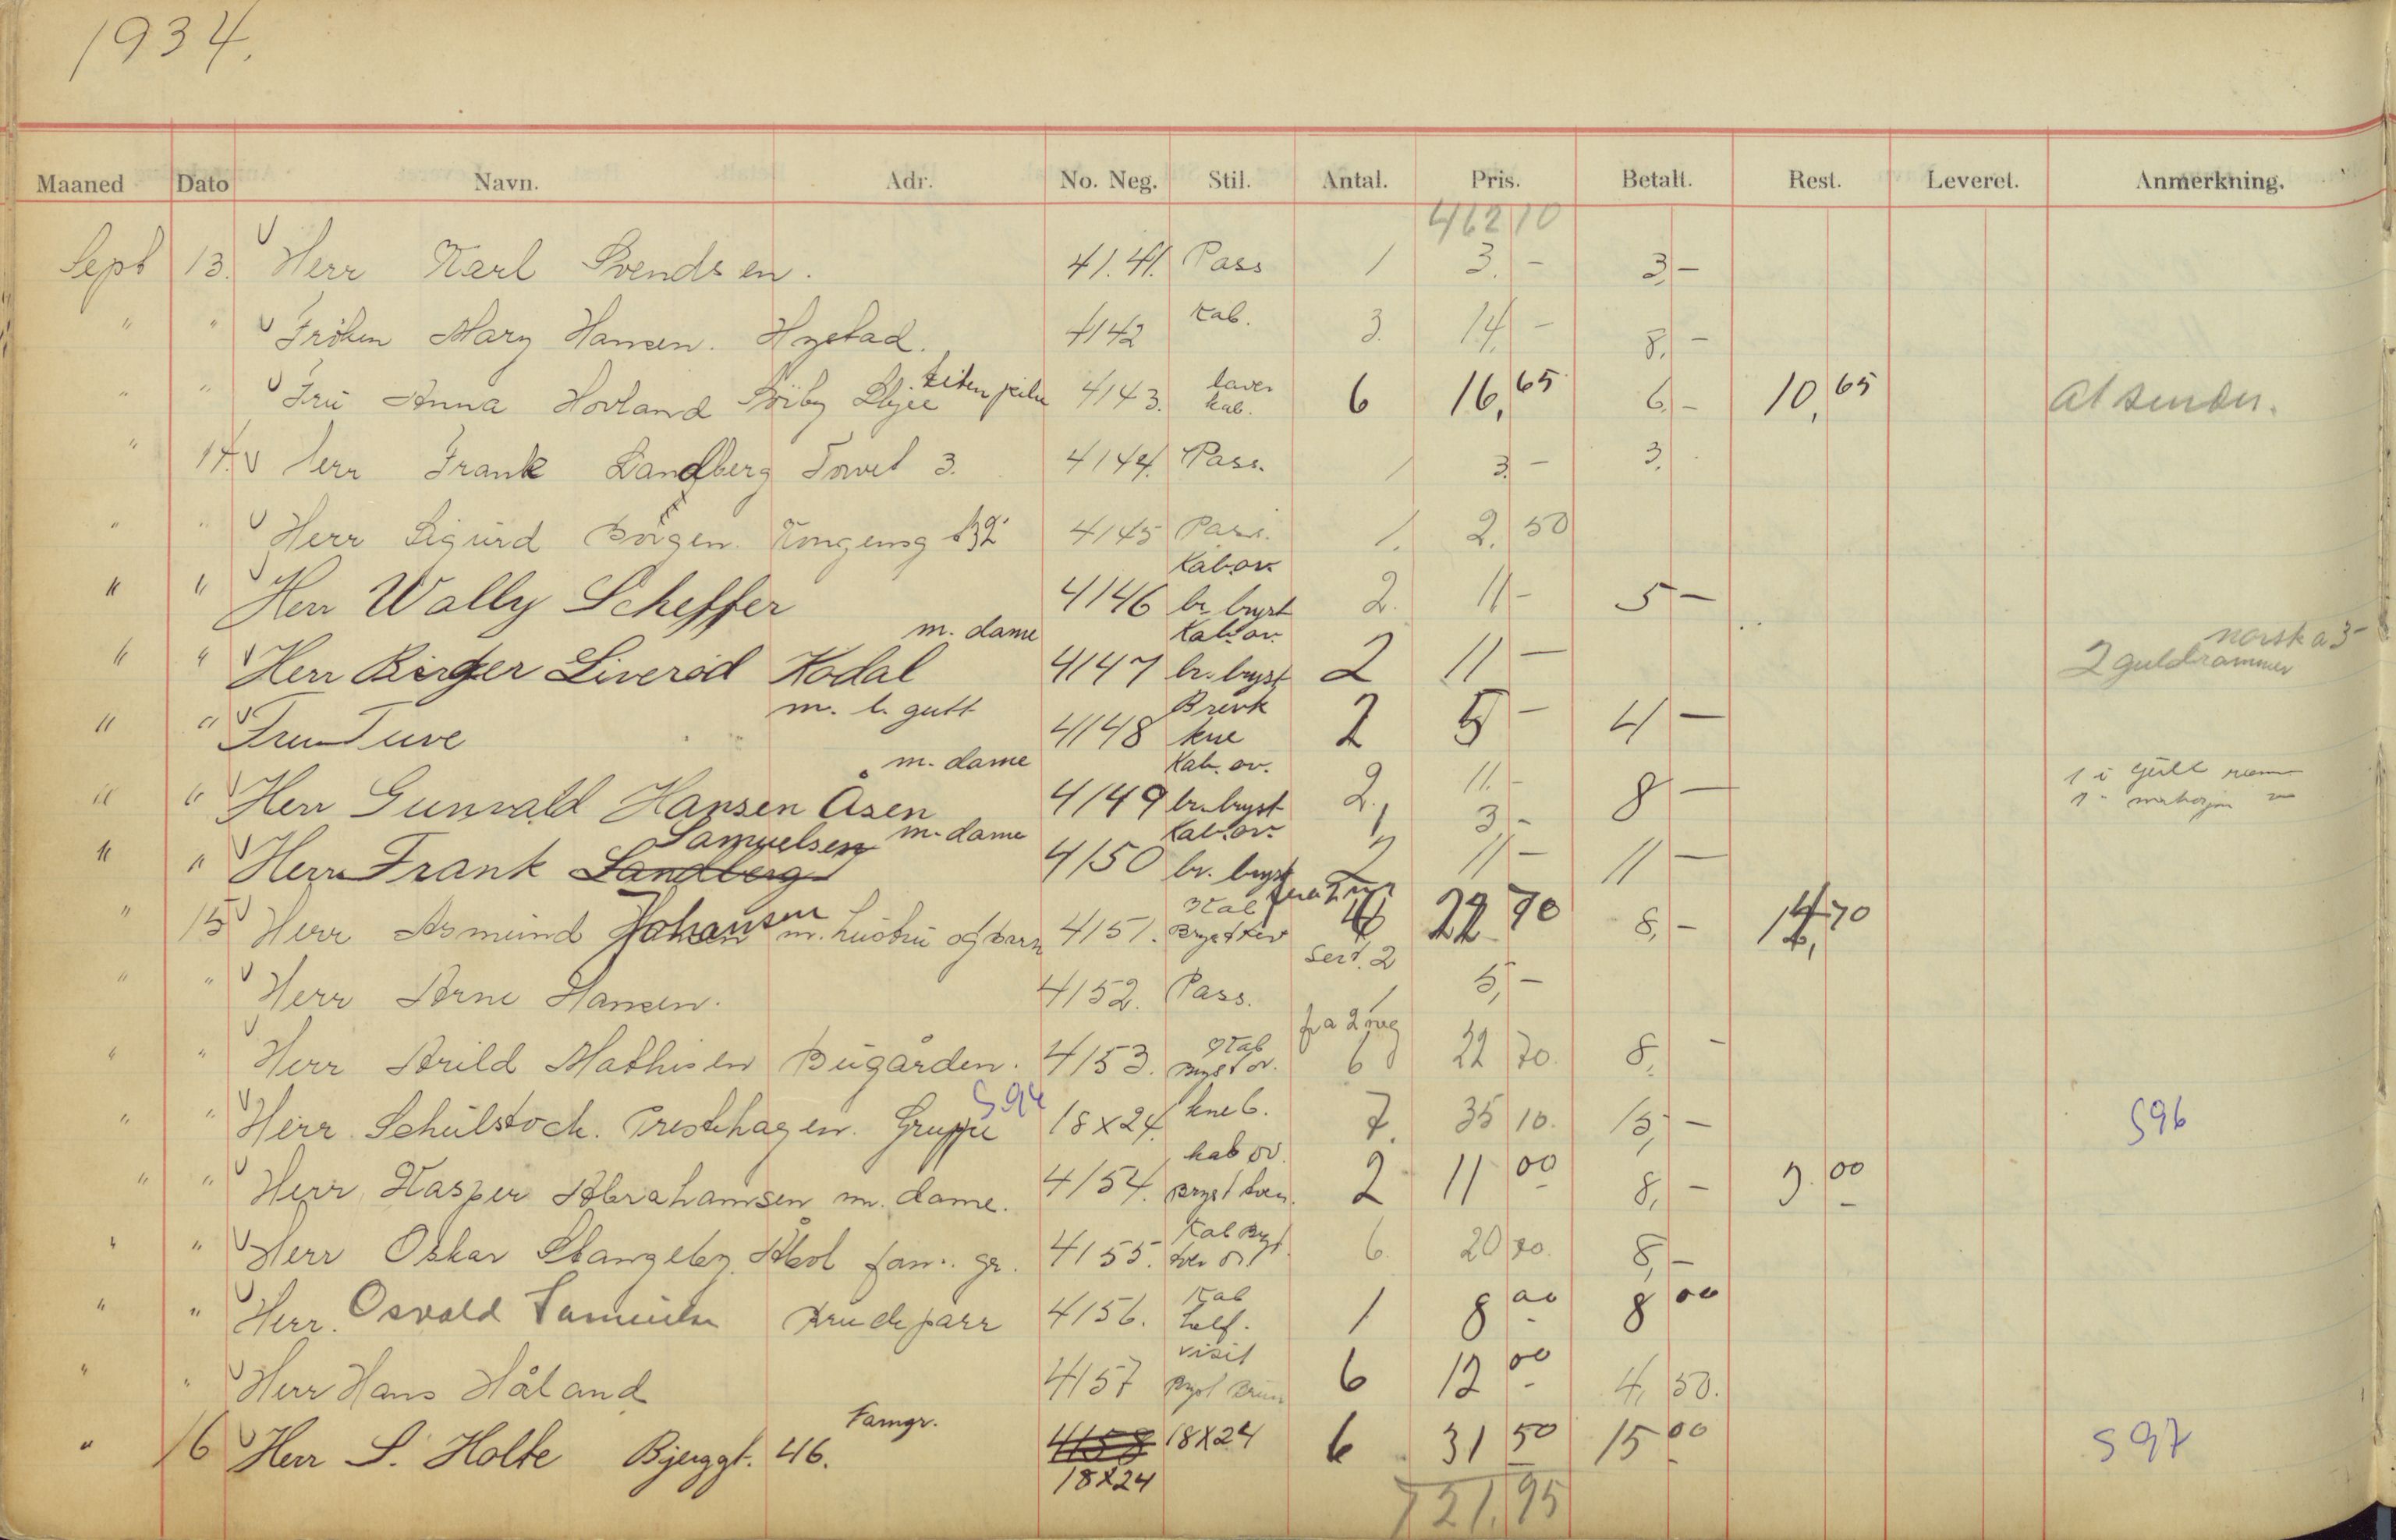 1934.
Maaned Dato Navn. Adr. No. Neg. Stil. Antal. Pris. Betalt. Rest. Leveret. Anmerkning.
462 10
Sept 13. Herr Karl Svendsen. 41.41. Pass 1 3. - 3,-
" " Fröken Mary Hansen. Hystad. 4142 Kab. 3. 14, - 8, -
" " Fru Anna Hovland liten pike 4143. kab. 6 16,65 6,- 10,65 At sendes.
" 14. Herr Frank Landberg Torvet 3. 4144. Pass. 1 3. - 3,
" " Herr Sigurd Borgen. Kongensg 4145 Pass. 1. 2. 50
" " Herr Wally Scheffer 4146 Kab. ov. br. bryst 2. 11 - 5 -
" " Herr Birger Liverød Kodal m. dame 4147 Kab. ov. br. bryst 2 11 - 2 guldrammer norsk a 3-
" " Fru Tuve m. l. gutt 4148 Brevk kne 2 5 - 4 -
" " Herr Gunvald Hansen Åsen m. dame 4149 Kab. ov. br. bryst 2, 11. - 8 - 1 i gull
1, 3, -
" " Herr Frank Landberg Samuelsen m. dame 4150 Kab. ov. br. bryst 2 11 - 11 -
" 15 Herr Asmund Johansen m. hustru og barn 4151. Kab 22 70 8, - 14,70
" " Herr Arne Hansen. 4152. Pass. Sert. 2 5, -
" " Herr Arild Mathisen Bugården. 4153. Kab bryst ov. fra 2 neg 6 22 70. 8, -
" " Herr Schulstock. Presthagen. Gruppe S94 18x24. kneb. 7. 35 10. 15, - S96
" " Herr Kasper Abrahamsen m. dame. 4154. kab ov. bryst 2 11 00 8, - 3. 00
" " Herr Oskar Stangeby. fam. gr. 4155. Kab 6. 20 70. 8, -
" " Herr. Osvald Samuelsen brudepar 4156. Kab half. 1 8 00 8 00
" " Herr Hans Håland 4157 visit bryst brun 6 12 00 4, 50.
" 16 Herr S. Holte Bjerggt. 46. Famgr. 4158 18X24 6 31 50 15 00 S97
18X24
721.95